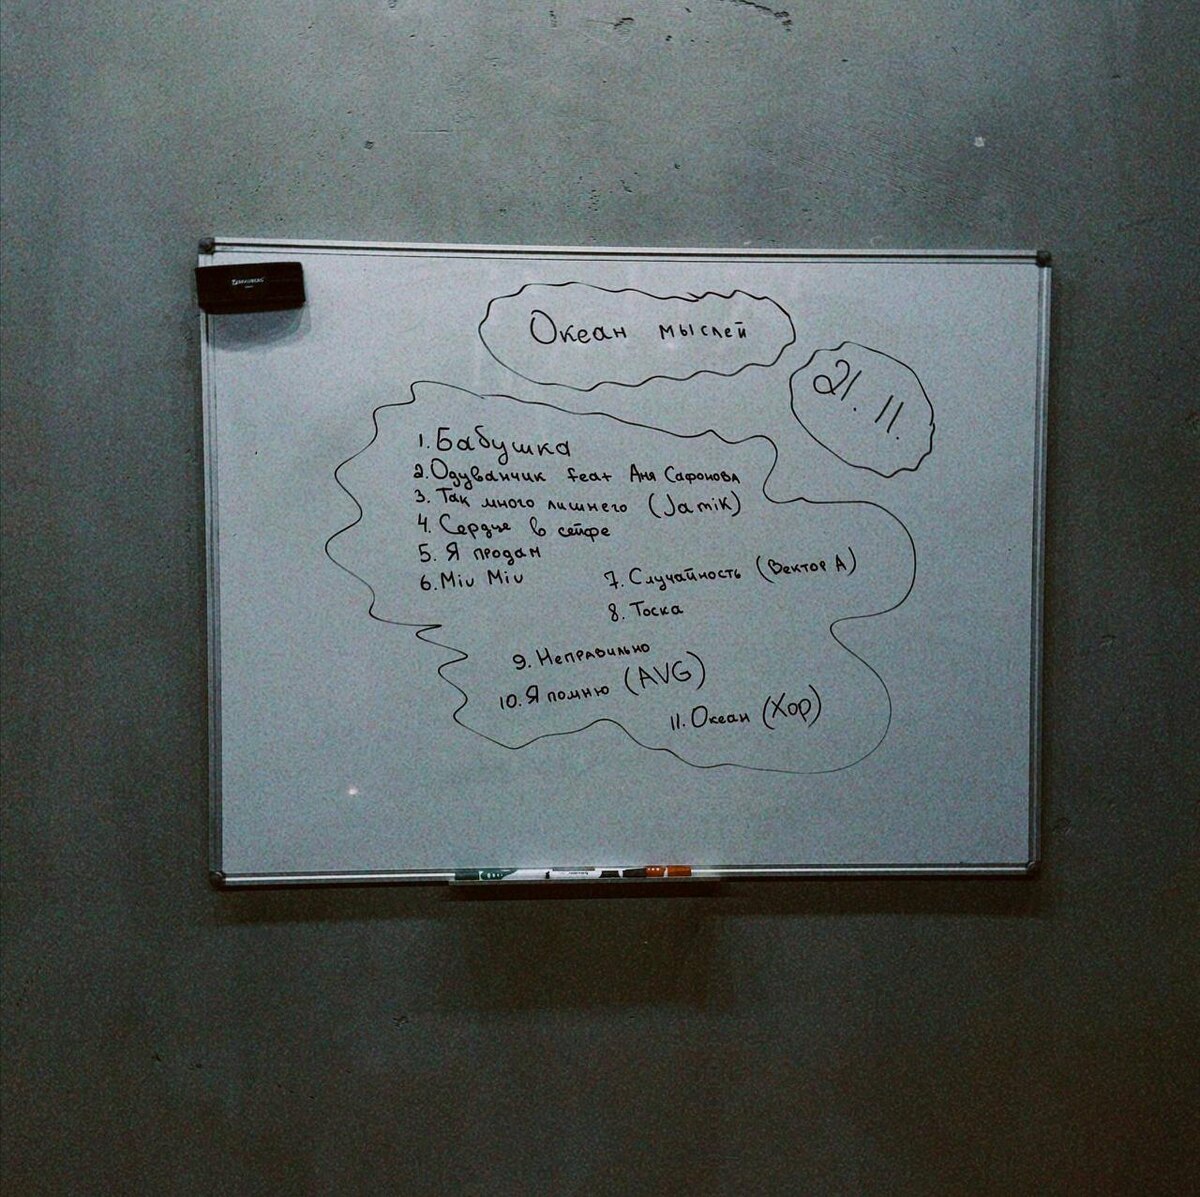 BRAUBERG
Океан мыслей
21.11.
1. Бабушка
2. Одуванчик feat Аня Сафонова
3. Так много лишнего (Jamik)
4. Сердце в сейфе
5. Я продам
6. Miu Miu
7. Случайность (Вектор А)
8. Тоска
9. Неправильно
10. Я помню (AVG)
11. Океан (Хор)